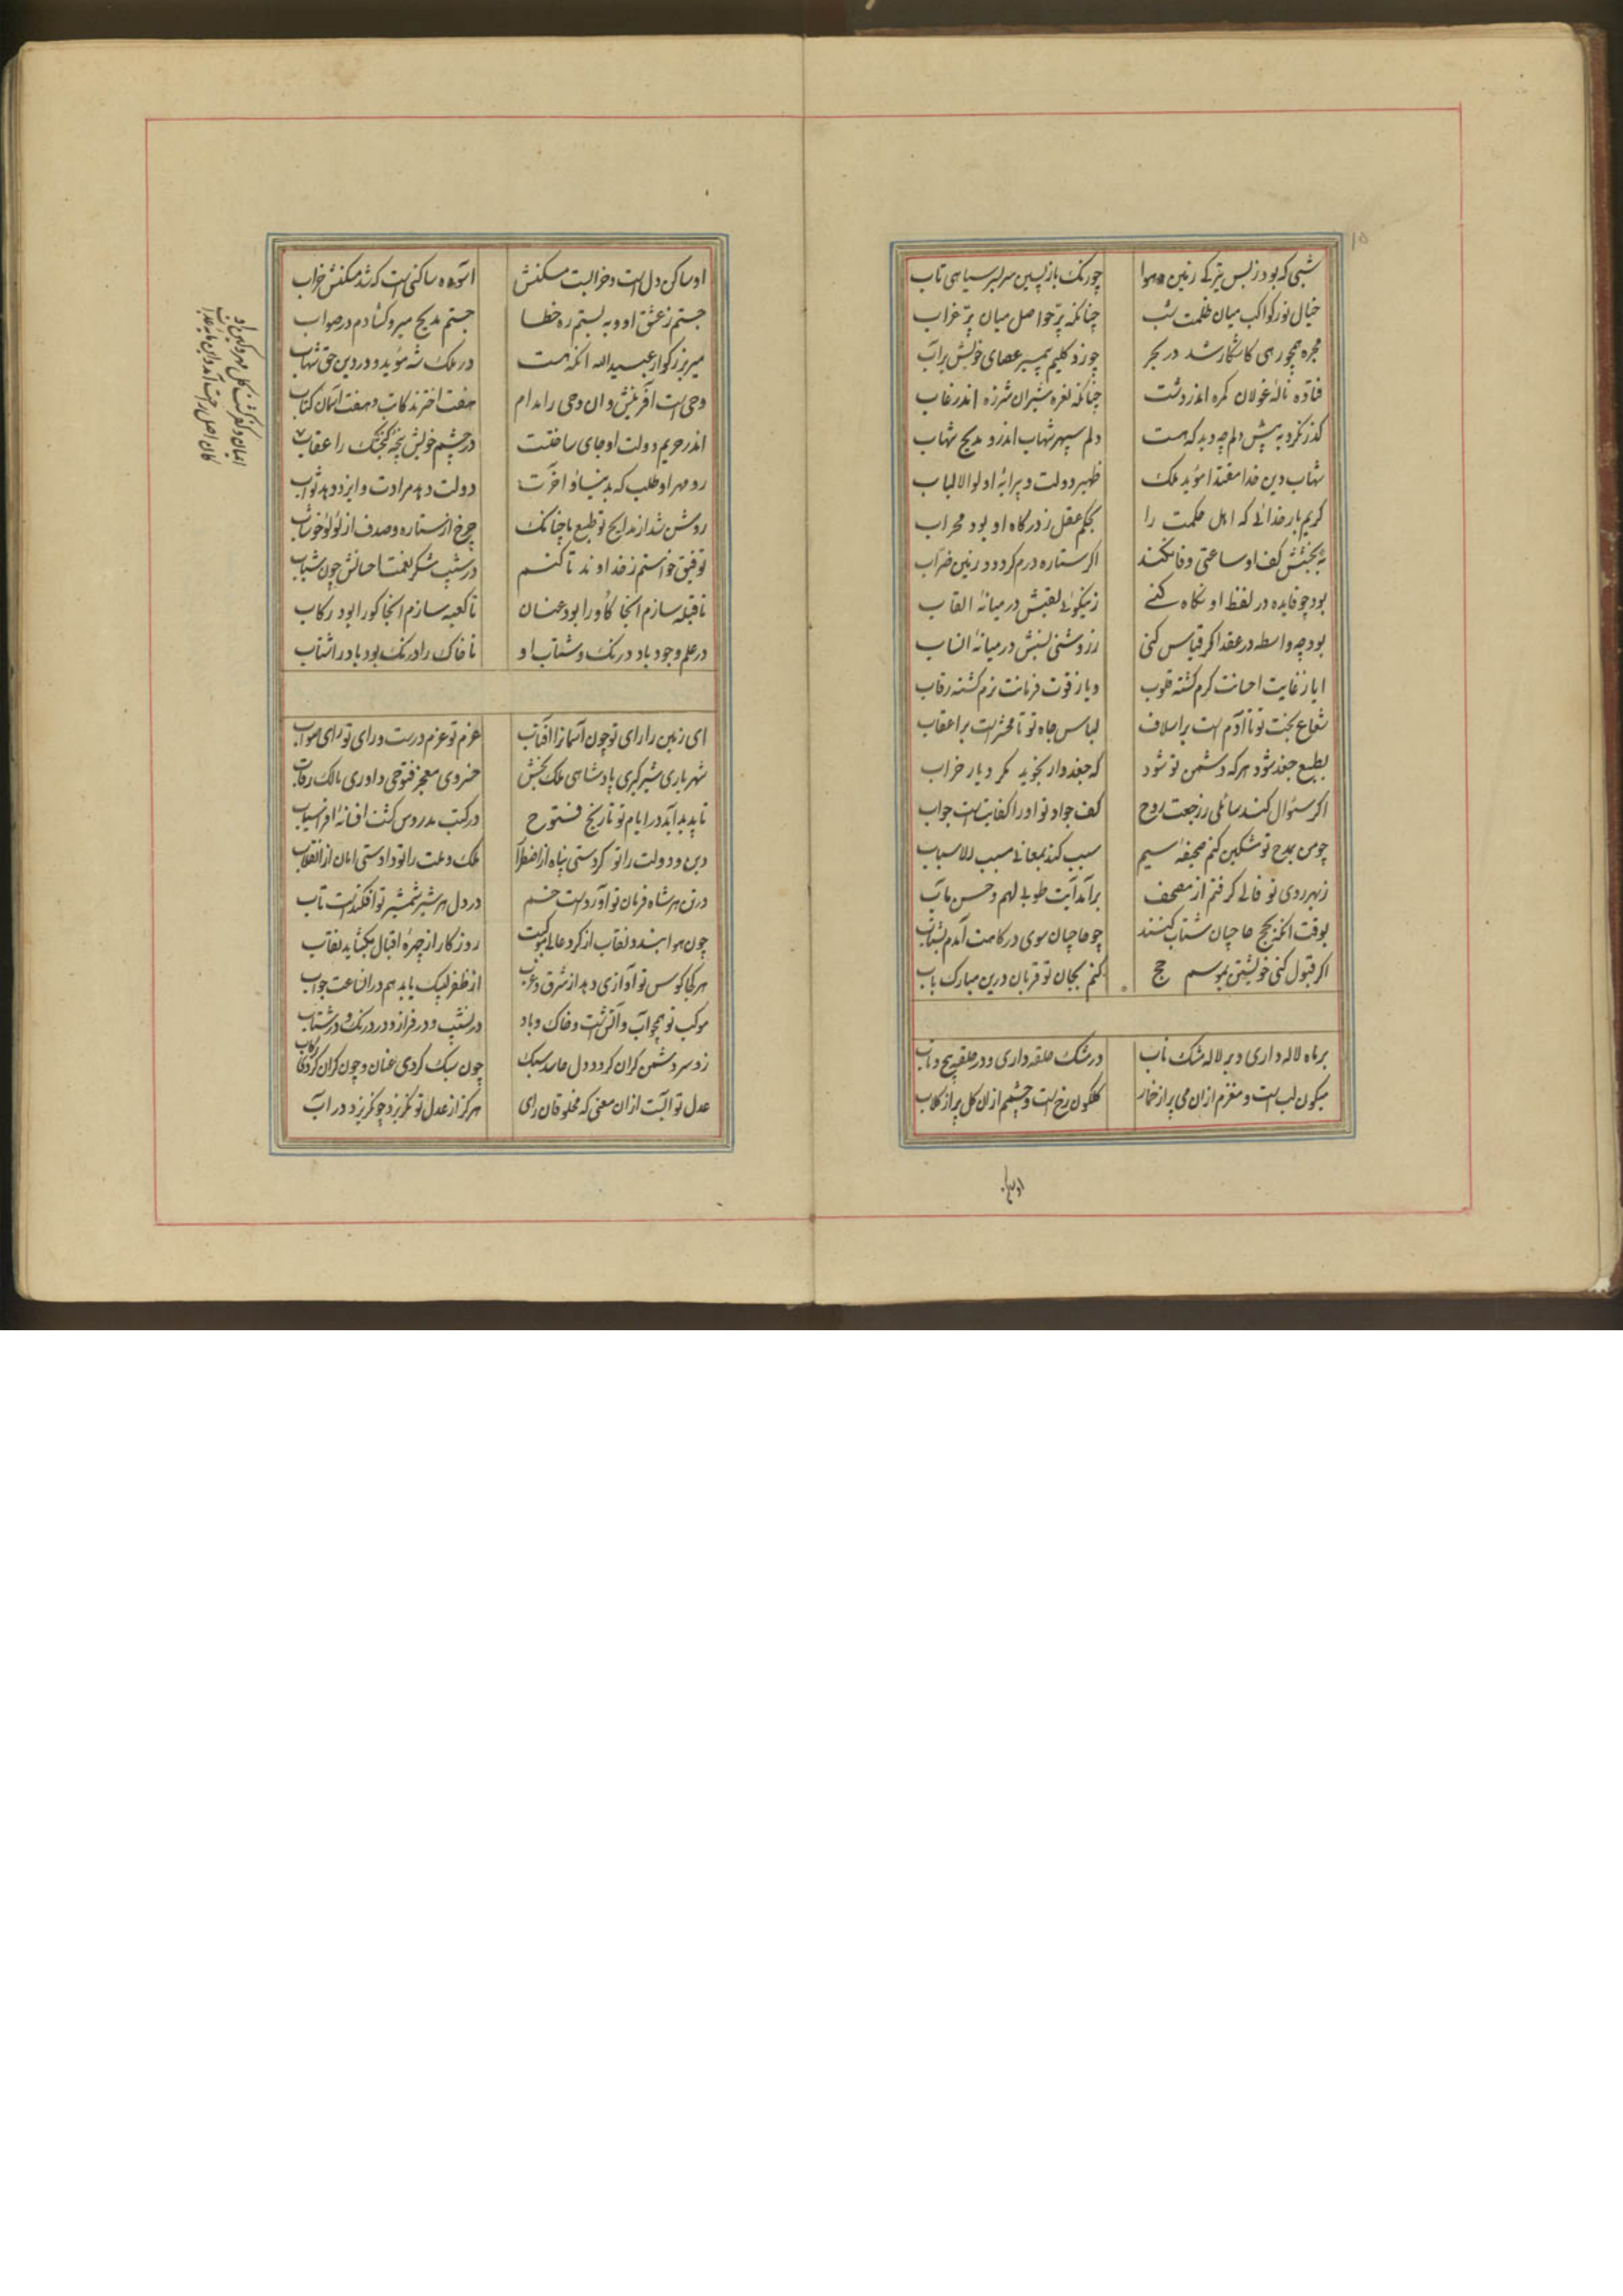 شبی که بود ز بس تیرگی زمین و هوا چو رنگ باز پسین سر بسر سیاهی تاب
خیال نور کواکب میان ظلمت شب چنانکه پرّ حواصل میان پرّ غراب
مجره همچو رهی کاشکار شد در بحر چو زد کلیم پیمبر عصای خویش برآب
فتاده ناله غولان کمره اندر دشت چنانکه نعره شیران شرزه اندر غاب
کذر نکرد به پیش دلم چه دید که هست دلم سپهر شهاب اندرو مدیح شهاب
شهاب دین خدا مقتدا مؤید ملک ظهیر دولت و پیرایه اولوالالباب
کریم بار خدائی که اهل حکمت را بحکم عقل ز درکاه او بود محراب
به بخشش کف او ساعتی وفا نکند اکر ستاره درم کردد و زمین ضراب
بود چو فایده در لفظ او نکاه کنی ز نیکوئی لقبش در میانه القاب
بود چه واسطه در عقد اکر قیاس کنی ز روشنی نسبش در میانه انساب
ایا ز غایت احسانت کرم کشته قلوب و یا ز قوت فرمانت نرم کشته رقاب
شعاع بخت تو تا آدم است بر اسلاف لباس جاه تو تا محشر است بر اعقاب
بطبع جغد شود هرکه دشمن تو شود که جغدوار نجوید مکر دیار خراب
اکر سئوال کند سائلی ز رجعت روح کف جواد تو او را کفایت است جواب
چو من بمدح تو مشکین کنم صحیفه سیم سبب کند بمعانی مسبب الاسباب
ز بهر روی تو فالی کرفتم از مصحف برآمد آیت طوبی لهم و حسن مآب
بوقت آنکه بحج حاجیان شتاب کنند چو حاجیان سوی درکاهت آمدم بشتاب
اکر قبول کنی خویشتن بموسم حج کنم بجان تو قربان درین مبارک باب
بر ماه لاله داری و بر لاله مشک ناب در مشک حلقه داری و در حلقه پیچ و تاب
میکون لب است و مغزم ازان می پر از خمار کلکون رخ است و چشمم ازان کل پر از کلاب
او ساکن
او ساکن دل است و خرابست مسکنش آسوده ساکنی است که شد مسکنش خراب
جستم ز عشق او و به بستم ره خطا جستم مدیح میر و کشادم در صواب
میر بزرکوار عبیدالله آنکه هست در ملک شه مؤید و در دین حق شهاب
وحی است آفرینش و آن وحی را مدام هفت اخترند کاتب و هفت آسمان کتاب
اندر حریم دولت او جای ساختست در چشم خویش بچه کنجشک را عقاب
رو مهر او طلب که بدنیا و آخرت دولت دهد مرادت و ایزد دهد ثواب
روشن شد از مدایح تو طبع ما چنانک چرخ از ستاره و صدف از لولو خوشاب
توفیق خواستم ز خداوند تا کنم در شیب شکر نعمت احسانش چون شباب
تا قبله سازم آنجا کاو را بود عنان تا کعبه سازم آنجا کو را بود رکاب
در علم وجود باد درنک و شتاب او تا خاک را درنک بود باد را شتاب
ای زمین را رای تو چون آسمانرا آفتاب عزم تو عزم درست و رای تو رای صواب
شهریاری شیرکیری پادشاهی ملک بخش خسروی معجز فتوحی داوری مالک رقاب
تا پدید آمد در ایام تو تاریخ فتوح در کتب مدروس کشت افسانه افراسیاب
دین و دولت را تو کردستی پناه از اضطراب ملک و ملت را تو دادستی امان از انقلاب
در تن هر شاه فرمان تو آورد است خم در دل هر شیر شمشیر تو افکند است تاب
چون هوا بندد نقاب از کرد عالی موکبت روزکار از چهره اقبال بکشاید نقاب
هر کجا کوس تو آوازی دهد از شرق و غرب از ظفر لبیک یابد هم در آن ساعت جواب
موکب تو همچو آب و آتش است و خاک و باد در نشیب و در فراز و در درنک و در شتاب
زو سر دشمن کران کردد دل حاسد سبک چون سبک کردی عنان و چون کران کردی رکاب
عدل تو آبست ازان معنی که مخلوقان رای هرکز از عدل تو نکریزد چو نکریزد در آب